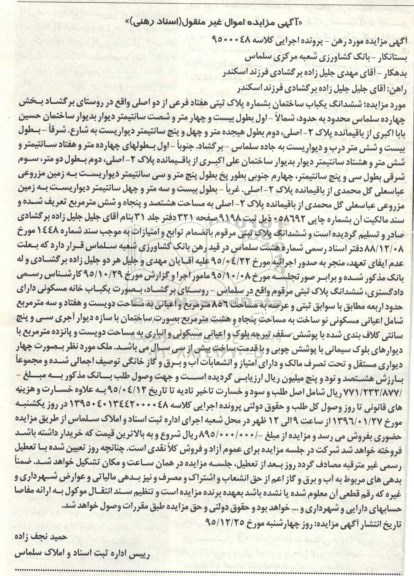 «آگهی مزایده اموال غیر منقول(اسناد رهنی)»
آگهی مزایده مورد رهن - پرونده اجرایی کلاسه ۹۵۰۰۰۴۸
بستانکار - بانک کشاورزی شعبه مرکزی سلماس
بدهکار - آقای مهدی جلیل زاده برگشادی فرزند اسکندر
راهن: آقای جلیل جلیل زاده برگشادی فرزند اسکندر
مورد مزایده: ششدانگ یکباب ساختمان بشماره پلاک ثبتی هفتاد فرعی از دو اصلی واقع در روستای برگشاد بخش
چهارده سلماس محدود به حدود، شمالاً - اول بطول بیست و چهار متر و شصت سانتیمتر دیوار بدیوار ساختمان حسین
بابا اکبری از باقیمانده پلاک ۲- اصلی، دوم بطول هیجده متر و چهل و پنج سانتیمتر دیواریست به شارع. شرقاً - بطول
بیست و شش متر درب و دیواریست به جاده سلماس - برگشاد. جنوباً - اول بطولهای چهارده متر و هفتاد سانتیمتر و
شش متر و هشتاد سانتیمتر دیوار بدیوار ساختمان علی اکبری از باقیمانده پلاک ۲- اصلی، دوم بطول دو متر، سوم
شرقی بطول سی و پنج سانتیمتر، چهارم جنوبی بطور پخ بطول پنج متر و سی سانتیمتر دیواریست به زمین مزروعی
عباسعلی گل محمدی از باقیمانده پلاک ۲- اصلی. غرباً - بطول بیست و سه متر و چهل سانتیمتر دیواریست به زمین
مزروعی عباسعلی گل محمدی از باقیمانده پلاک ۲- اصلی به مساحت هشتصد و پنجاه و شش مترمربع تعریف شده و
سند مالکیت آن بشماره چاپی ۰۵۸۶۹۲ ذیل ثبت ۹۱۹۸ صفحه ۳۲۱ دفتر جلد ۳۱ بنام آقای جلیل جلیل زاده برگشادی
صادر و تسلیم گردیده است و ششدانگ پلاک ثبتی مرقوم بانضمام توابع و امتیازات به موجب سند شماره ۱۴۴۸ مورخ
۸۸/۱۲/۰۸ دفتر اسناد رسمی شماره هشت سلماس در قید رهن بانک کشاورزی شعبه سلماس قرار دارد که بعلت
عدم ایفای تعهد، منجر به صدور اجرائیه مورخ ۹۵/۰۴/۲۲ علیه آقایان مهدی و جلیل هر دو جلیل زاده برگشادی و له
بانک مذکور شده و برابر صورتجلسه مورخ ۹۵/۱۰/۰۸ مامور اجرا و گزارش مورخ ۹۵/۱۰/۲۹ کارشناس رسمی
دادگستری، ششدانگ پلاک ثبتی مرقوم واقع در سلماس - روستای برگشاد، بصورت یکباب خانه مسکونی دارای
حدود اربعه مطابق با سوابق ثبتی و عرصه به مساحت ۸۵۶ مترمربع و اعیانی به مساحت دویست و هفتاد و سه مترمربع
شامل اعیانی مسکونی نو ساخت به مساحت پنجاه و هشت مترمربع بصورت ساختمان با سازه دیوار آجری سی و پنج
سانتی کلاف بندی شده با پوشش سقف تیرچه بلوک و اعیانی مسکونی و انباری به مساحت دویست و پانزده مترمربع با
دیوارهای بلوک سیمانی با پوشش چوبی و با قدمت ساخت بیش از سی سال می باشد. ملک مورد نظر بصورت چهار
دیواری مستقل و تحت تصرف مالک و دارای امتیاز و انشعابات آب و برق و گاز خانگی توصیف اجمالی شده و مجموعاً
بارزش هشتصد و نود و پنج میلیون ریال ارزیابی گردیده است و جهت وصول طلب بانک مذکور به مبلغ -
/۷۷۱/۲۳۲/۸۷۷ ریال شامل اصل طلب و سود و خسارت تاخیر تادیه تا تاریخ ۹۵/۰۴/۱۲ به علاوه خسارت و هزینه
های قانونی تا روز وصول کل طلب و حقوق دولتی پرونده اجرایی کلاسه ۱۳۹۵۰۴۰۱۳۴۴۲۰۰۰۰۴۸ در روز یکشنبه
مورخ ۱۳۹۶/۰۱/۲۷ از ساعت ۹ الی ۱۲ ظهر در محل شعبه اجرای اداره ثبت اسناد و املاک سلماس از طریق مزایده
حضوری بفروش می رسد و مزایده از مبلغ -/۸۹۵/۰۰۰/۰۰۰ ریال شروع و به بالاترین قیمت که خریدار داشته باشد
فروخته خواهد شد شرکت در جلسه مزایده برای عموم آزاد و فروش کلاً نقدی است. چنانچه روز تعیین شده با تعطیل
رسمی غیر مترقبه مصادف گردد روز بعد از تعطیل، جلسه مزایده در همان ساعت و مکان تشکیل خواهد شد. ضمناً
بدهی های مربوط به آب و برق و گاز اعم از حق انشعاب و اشتراک و مصرف و نیز بدهی مالیاتی و عوارض شهرداری و
غیره که رقم قطعی آن معلوم شده یا نشده باشد بعهده برنده مزایده است و تنظیم سند انتقال موکول به ارائه مفاصا
حسابهای دارایی و شهرداری و ... خواهد بود و حقوق دولتی و حق مزایده طبق مقررات وصول خواهد شد.
تاریخ انتشار آگهی مزایده: روز چهارشنبه مورخ ۹۵/۱۲/۲۵
حمید نجف زاده
رییس اداره ثبت اسناد و املاک سلماس